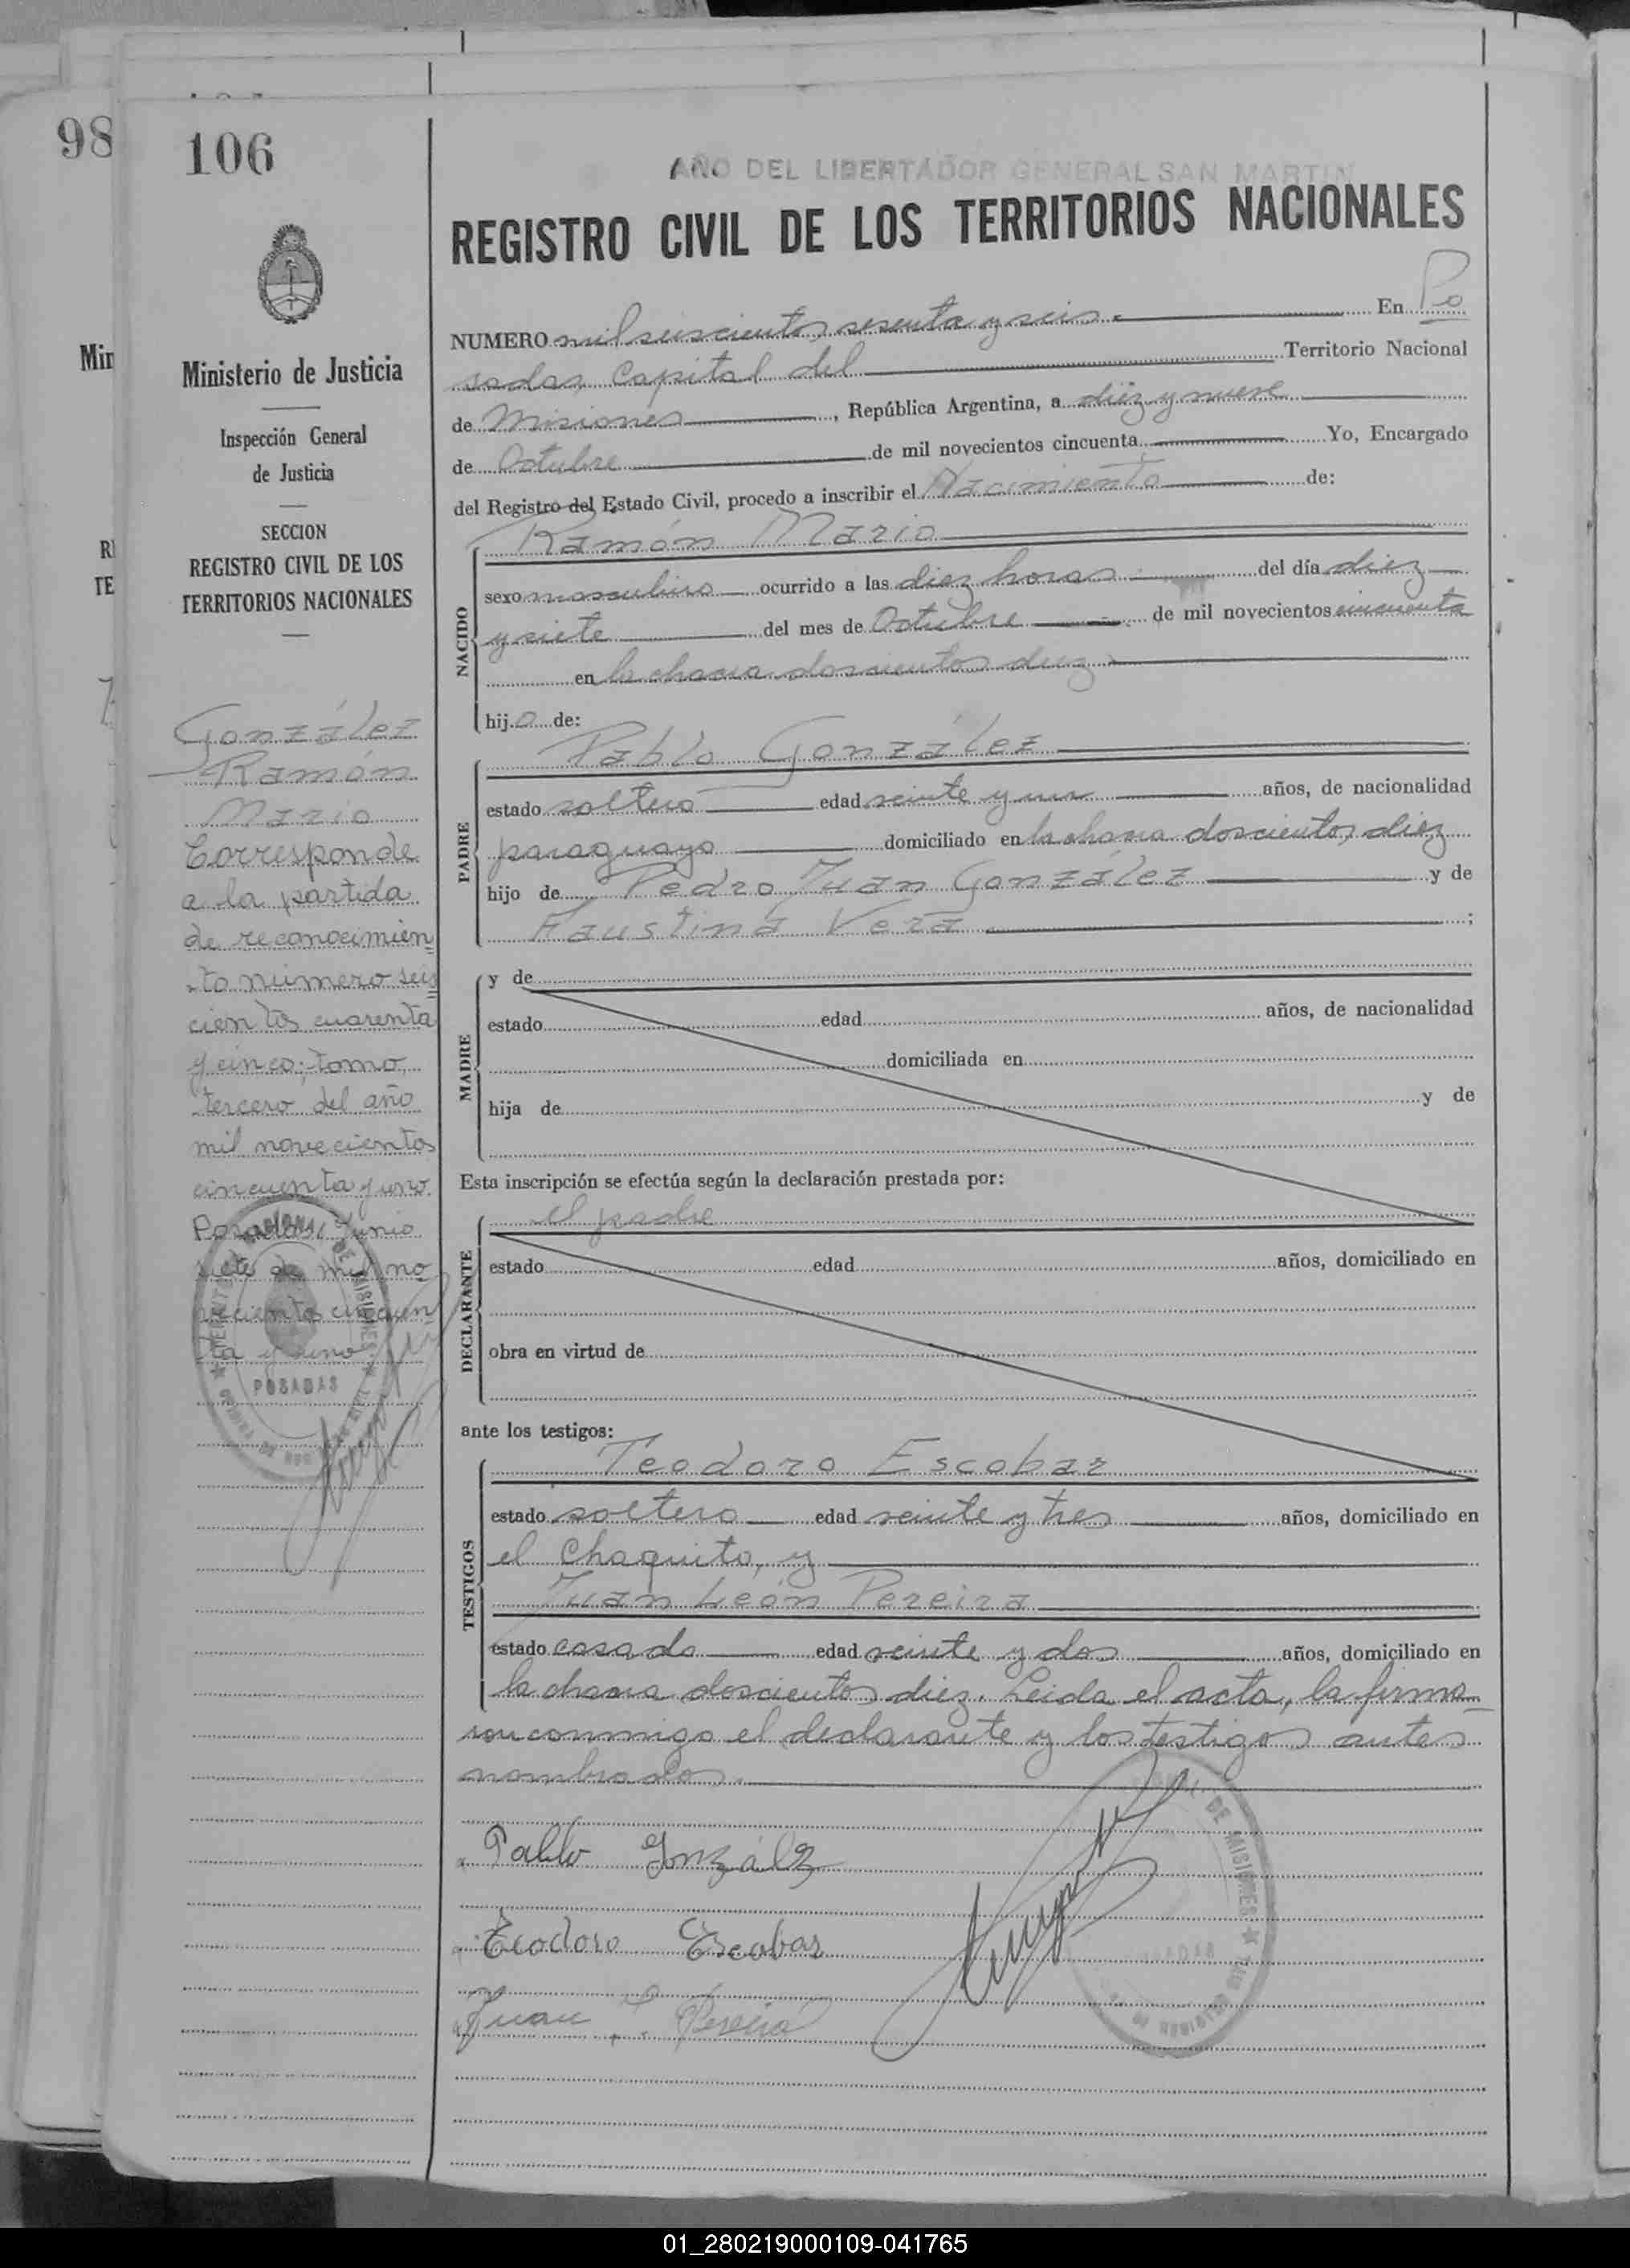 98
106
AÑO DEL LIBERTADOR GENERAL SAN MARTIN
REGISTRO CIVIL DE LOS TERRITORIOS NACIONALES
Min
Ministerio de Justicia
Inspección General
de Justicia
SECCION
REGISTRO CIVIL DE LOS
TERRITORIOS NACIONALES
TE
González
Ramón
Mario
Corresponde
a la partida
de reconocimien
to número seis
cientos cuarenta
y cinco; tomo
tercero del año
mil novecientos
cincuenta y uno.
Posadas, Junio
siete de mil no
vecientos cincuen
ta y uno
POSADAS
NUMERO mil seiscientos sesenta y seis. En Po
sadas, Capital del Territorio Nacional
de Misiones, República Argentina, a diez y nueve
de Octubre de mil novecientos cincuenta Yo, Encargado
del Registro del Estado Civil, procedo a inscribir el Nacimiento de:
NACIDO
Ramón Mario
sexo masculino ocurrido a las diez horas del día diez
y siete del mes de Octubre de mil novecientos cincuenta
en la chacra doscientos diez
hijo de:
PADRE
Pablo González
estado soltero edad veinte y un años, de nacionalidad
paraguayo domiciliado en la chacra doscientos diez
hijo de Pedro Juan González y de
Faustina Vera ;
MADRE
y de
estado edad años, de nacionalidad
domiciliada en
hija de y de
Esta inscripción se efectúa según la declaración prestada por:
DECLARANTE
el padre
estado edad años, domiciliado en
obra en virtud de
ante los testigos:
TESTIGOS
Teodoro Escobar
estado soltero edad veinte y tres años, domiciliado en
el Chaquito, y
Juan León Pereira
estado casado edad veinte y dos años, domiciliado en
la chacra doscientos diez. Leida el acta, la firma
ron conmigo el declarante y los testigos antes
nombrados.
DE MISIONES
Pablo Gonzálz
Teodoro Escobar
Juan L. Pereira
01_280219000109-041765